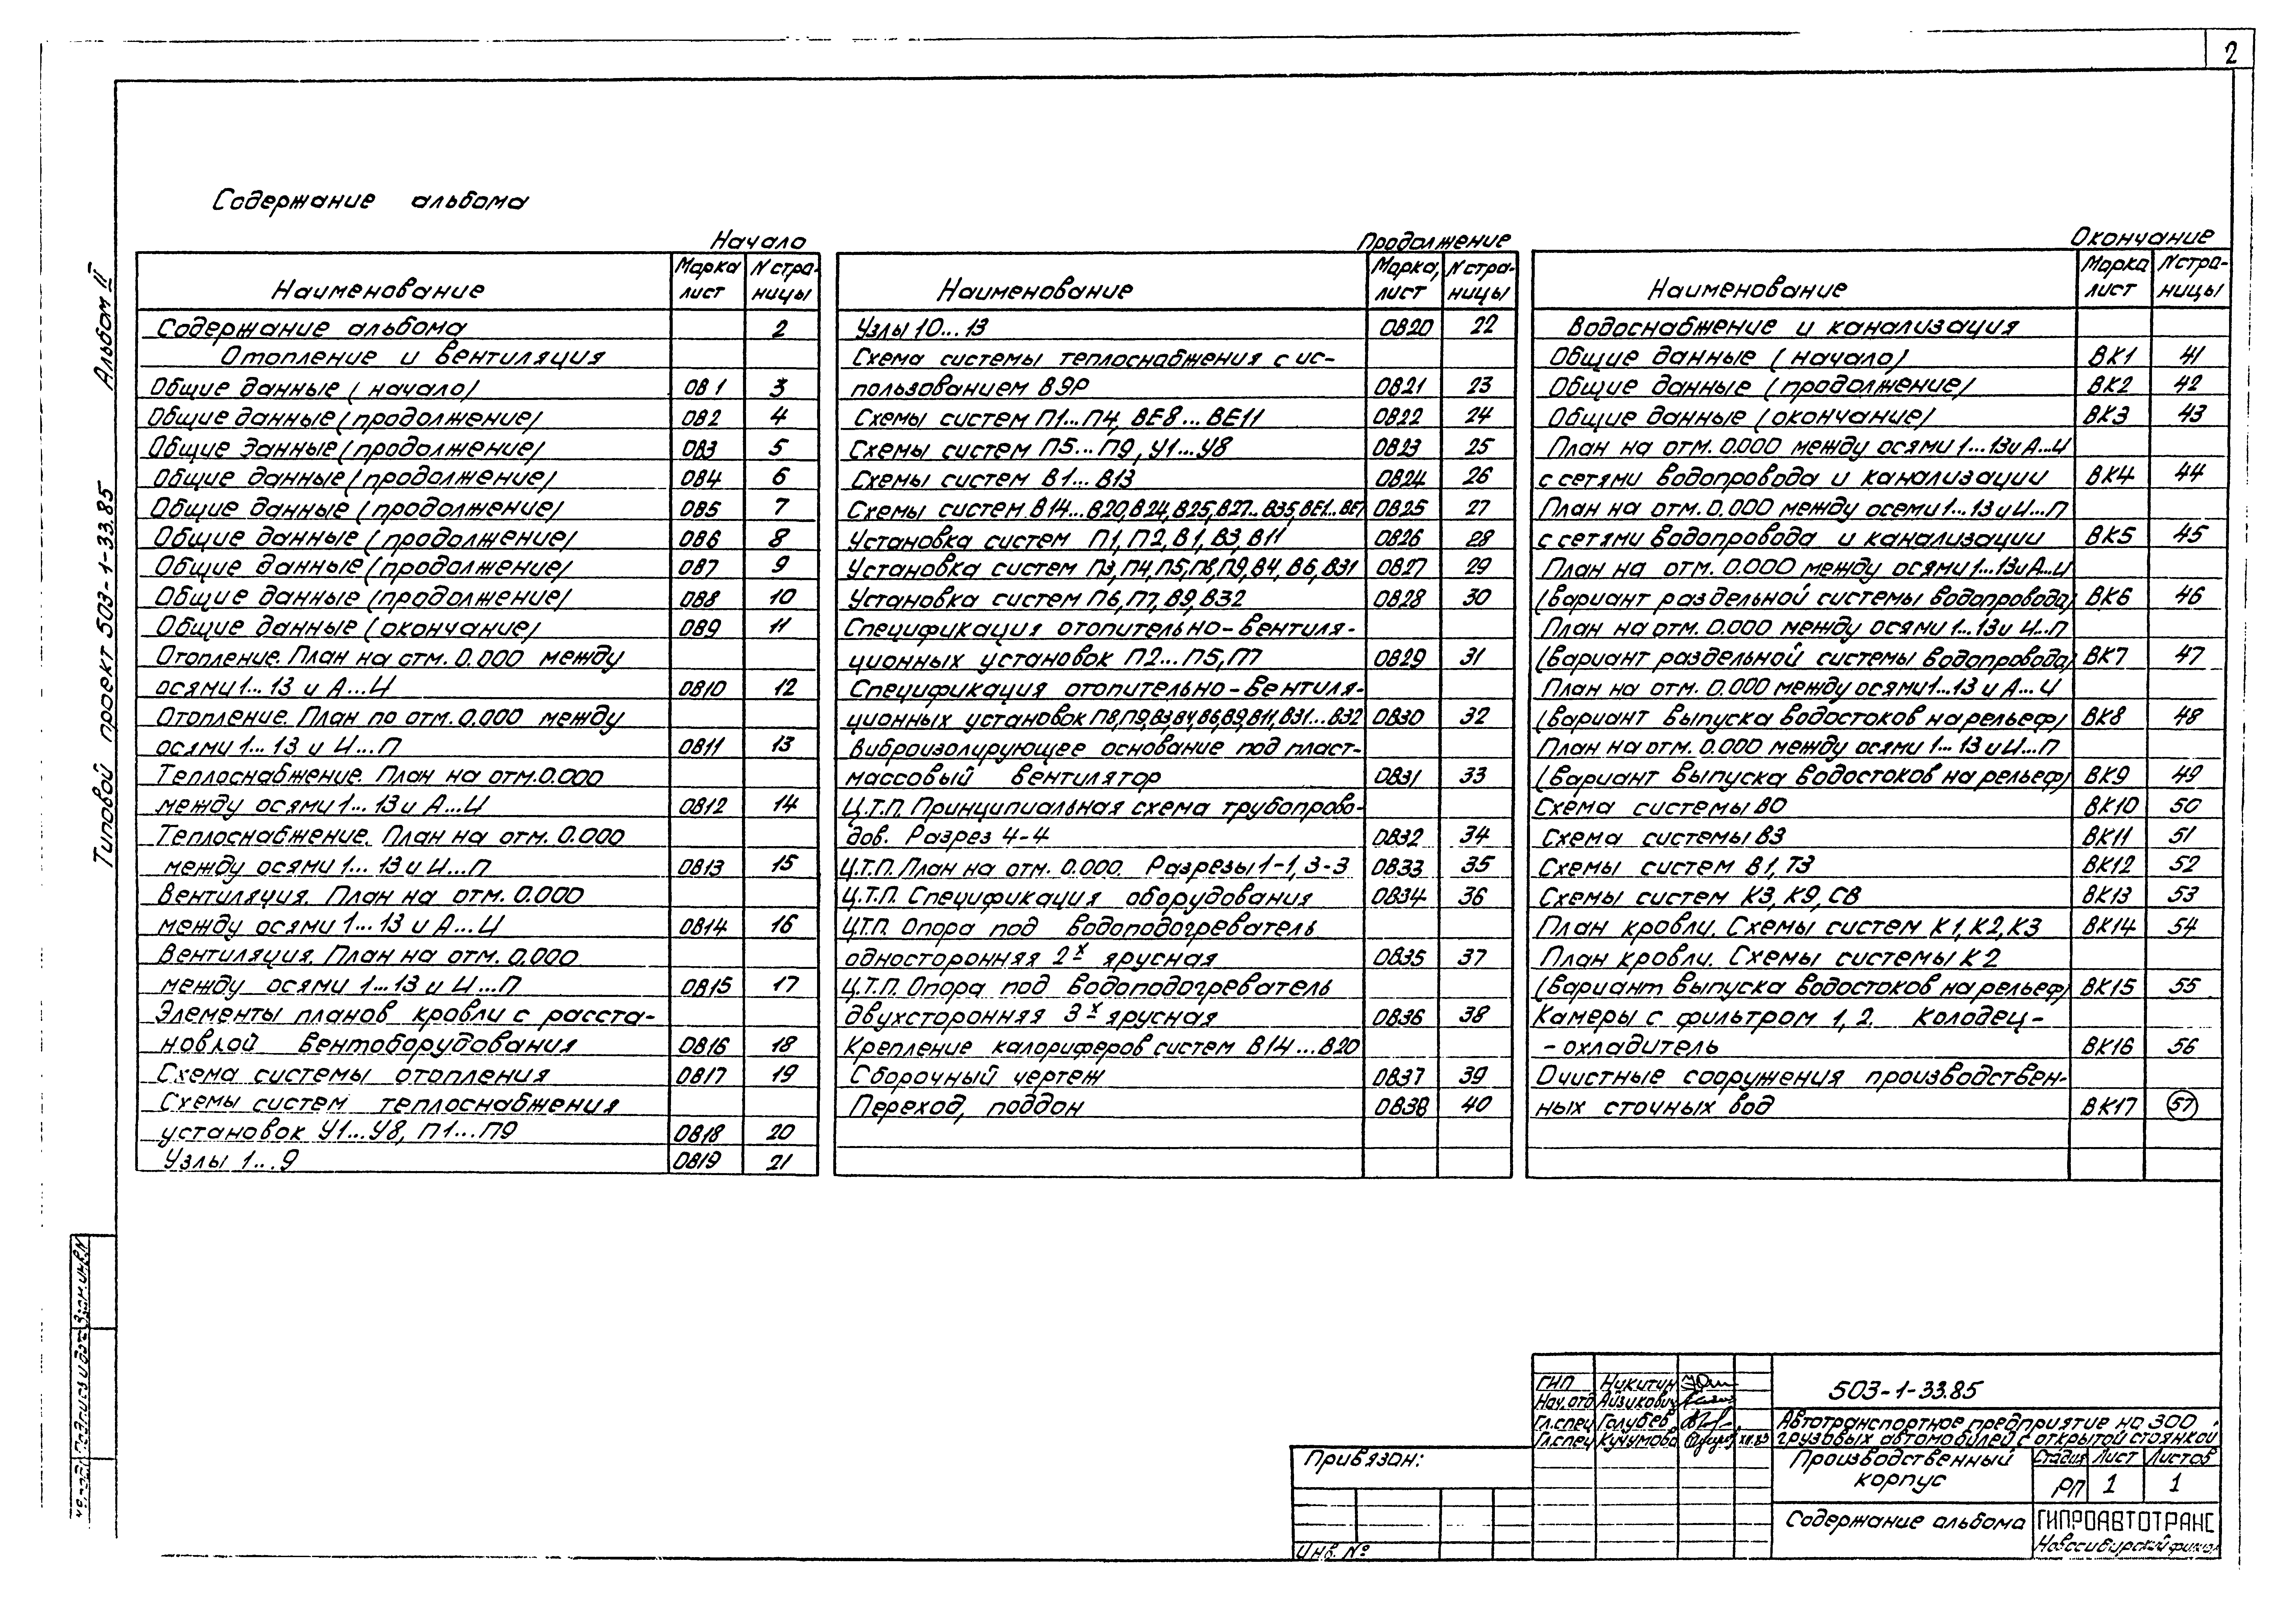 2
Содержание альбома
Типовой проект 503-1-33.85 Альбом II
Начало
Наименование Марка лист N страницы
Содержание альбома 2
Отопление и вентиляция
Общие данные (начало) ОВ1 3
Общие данные (продолжение) ОВ2 4
Общие данные (продолжение) ОВ3 5
Общие данные (продолжение) ОВ4 6
Общие данные (продолжение) ОВ5 7
Общие данные (продолжение) ОВ6 8
Общие данные (продолжение) ОВ7 9
Общие данные (продолжение) ОВ8 10
Общие данные (окончание) ОВ9 11
Отопление. План на отм. 0.000 между
осями 1...13 и А...И ОВ10 12
Отопление. План по отм. 0.000 между
осями 1...13 и И...П ОВ11 13
Теплоснабжение. План на отм. 0.000
между осями 1...13 и А...И ОВ12 14
Теплоснабжение. План на отм. 0.000
между осями 1...13 и И...П ОВ13 15
Вентиляция. План на отм. 0.000
между осями 1...13 и А...И ОВ14 16
Вентиляция. План на отм. 0.000
между осями 1...13 и И...П ОВ15 17
Элементы планов кровли с расста-
новкой вентоборудования ОВ16 18
Схема системы отопления ОВ17 19
Схемы систем теплоснабжения
установок У1...У8, П1...П9 ОВ18 20
Узлы 1...9 ОВ19 21
Продолжение
Наименование Марка, лист N страницы
Узлы 10...13 ОВ20 22
Схема системы теплоснабжения с ис-
пользованием ВЭР ОВ21 23
Схемы систем П1...П4, ВЕ8...ВЕ11 ОВ22 24
Схемы систем П5...П9, У1...У8 ОВ23 25
Схемы систем В1...В13 ОВ24 26
Схемы систем В14...В20, В24, В25, В27...В35, ВЕ1...ВЕ7 ОВ25 27
Установка систем П1, П2, В1, В3, В11 ОВ26 28
Установка систем П3, П4, П5, П8, П9, В4, В6, В31 ОВ27 29
Установка систем П6, П7, В9, В32 ОВ28 30
Спецификация отопительно-вентиля-
ционных установок П2...П5, П7 ОВ29 31
Спецификация отопительно-вентиля-
ционных установок П8, П9, В3, В4, В6, В9, В11, В31...В32 ОВ30 32
Виброизолирующее основание под пласт-
массовый вентилятор ОВ31 33
Ц.Т.П. Принципиальная схема трубопрово-
дов. Разрез 4-4 ОВ32 34
Ц.Т.П. План на отм. 0.000. Разрезы 1-1, 3-3 ОВ33 35
Ц.Т.П. Спецификация оборудования ОВ34 36
Ц.Т.П. Опора под водоподогреватель
односторонняя 2х ярусная ОВ35 37
Ц.Т.П. Опора под водоподогреватель
двухсторонняя 3х ярусная ОВ36 38
Крепление калориферов систем В14...В20
Сборочный чертеж ОВ37 39
Переход, поддон ОВ38 40
Окончание
Наименование Марка лист N страницы
Водоснабжение и канализация
Общие данные (начало) ВК1 41
Общие данные (продолжение) ВК2 42
Общие данные (окончание) ВК3 43
План на отм. 0.000 между осями 1...13 и А...И
с сетями водопровода и канализации ВК4 44
План на отм. 0.000 между осеми 1...13 и И...П
с сетями водопровода и канализации ВК5 45
План на отм. 0.000 между осями 1...13 и А...И
(вариант раздельной системы водопровода) ВК6 46
План на отм. 0.000 между осями 1...13 и И...П
(вариант раздельной системы водопровода) ВК7 47
План на отм. 0.000 между осями 1...13 и А...И
(вариант выпуска водостоков на рельеф) ВК8 48
План на отм. 0.000 между осями 1...13 и И...П
(вариант выпуска водостоков на рельеф) ВК9 49
Схема системы В0 ВК10 50
Схема системы В3 ВК11 51
Схемы систем В1, Т3 ВК12 52
Схемы систем К3, К9, СВ ВК13 53
План кровли. Схемы систем К1, К2, К3 ВК14 54
План кровли. Схемы системы К2
(вариант выпуска водостоков на рельеф) ВК15 55
Камеры с фильтром 1, 2. Колодец-
-охладитель ВК16 56
Очистные сооружения производствен-
ных сточных вод ВК17 57
Взам. инв. N
Подпись и дата
Привязан:
Инв. №
ГИП Никитин
Нач. отд Айзикович
Гл. спец Голубев
Гл. спец Кучумова
503-1-33.85
Автотранспортное предприятие на 300
грузовых автомобилей с открытой стоянкой
Производственный
корпус
Стадия Лист Листов
РП 1 1
Содержание альбома
ГИПРОАВТОТРАНС
Новосибирский филиал